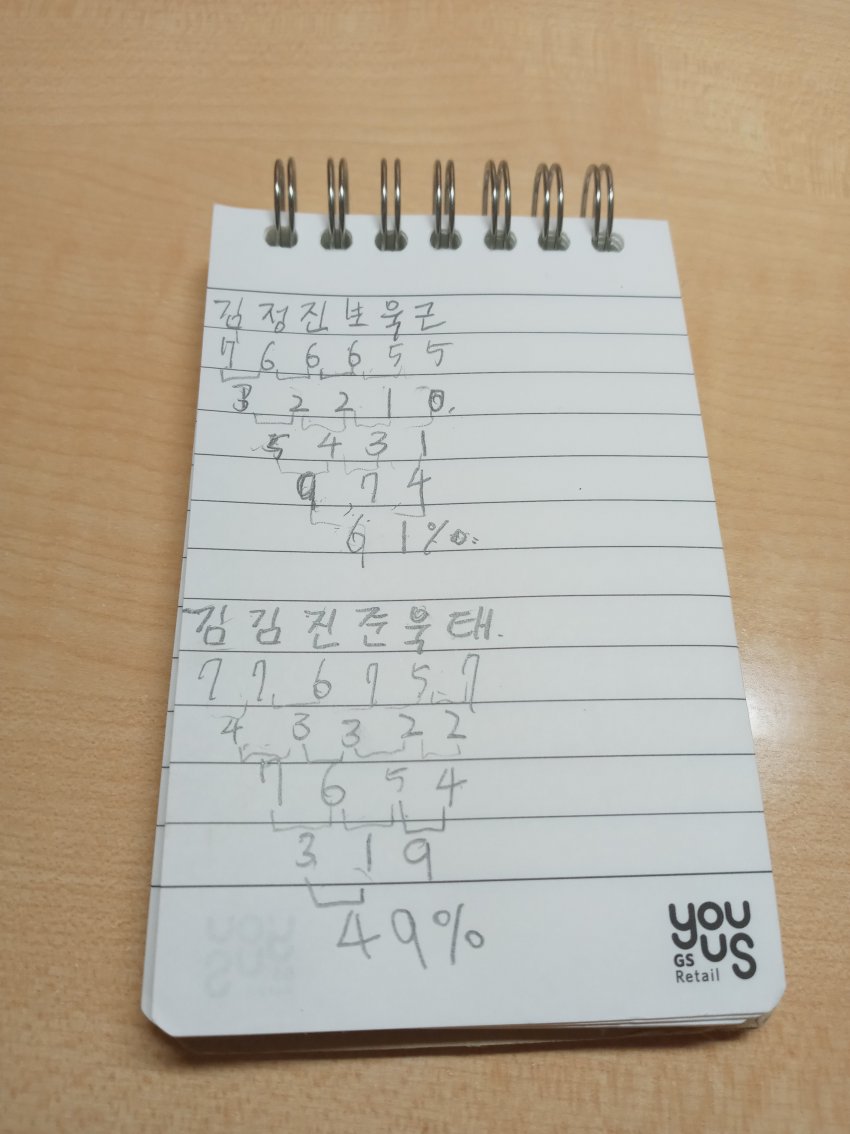 김 정 진 보 욱 근
7 6 6 6 5 5
3 2 2 1 0.
5 4 3 1
9 7 4
6 1%.
김 김 진 준 욱 태.
7 7 6 7 5 7
4 3 3 2 2
7 6 5 4
3 1 9
4 9%
you
us
GS
Retail